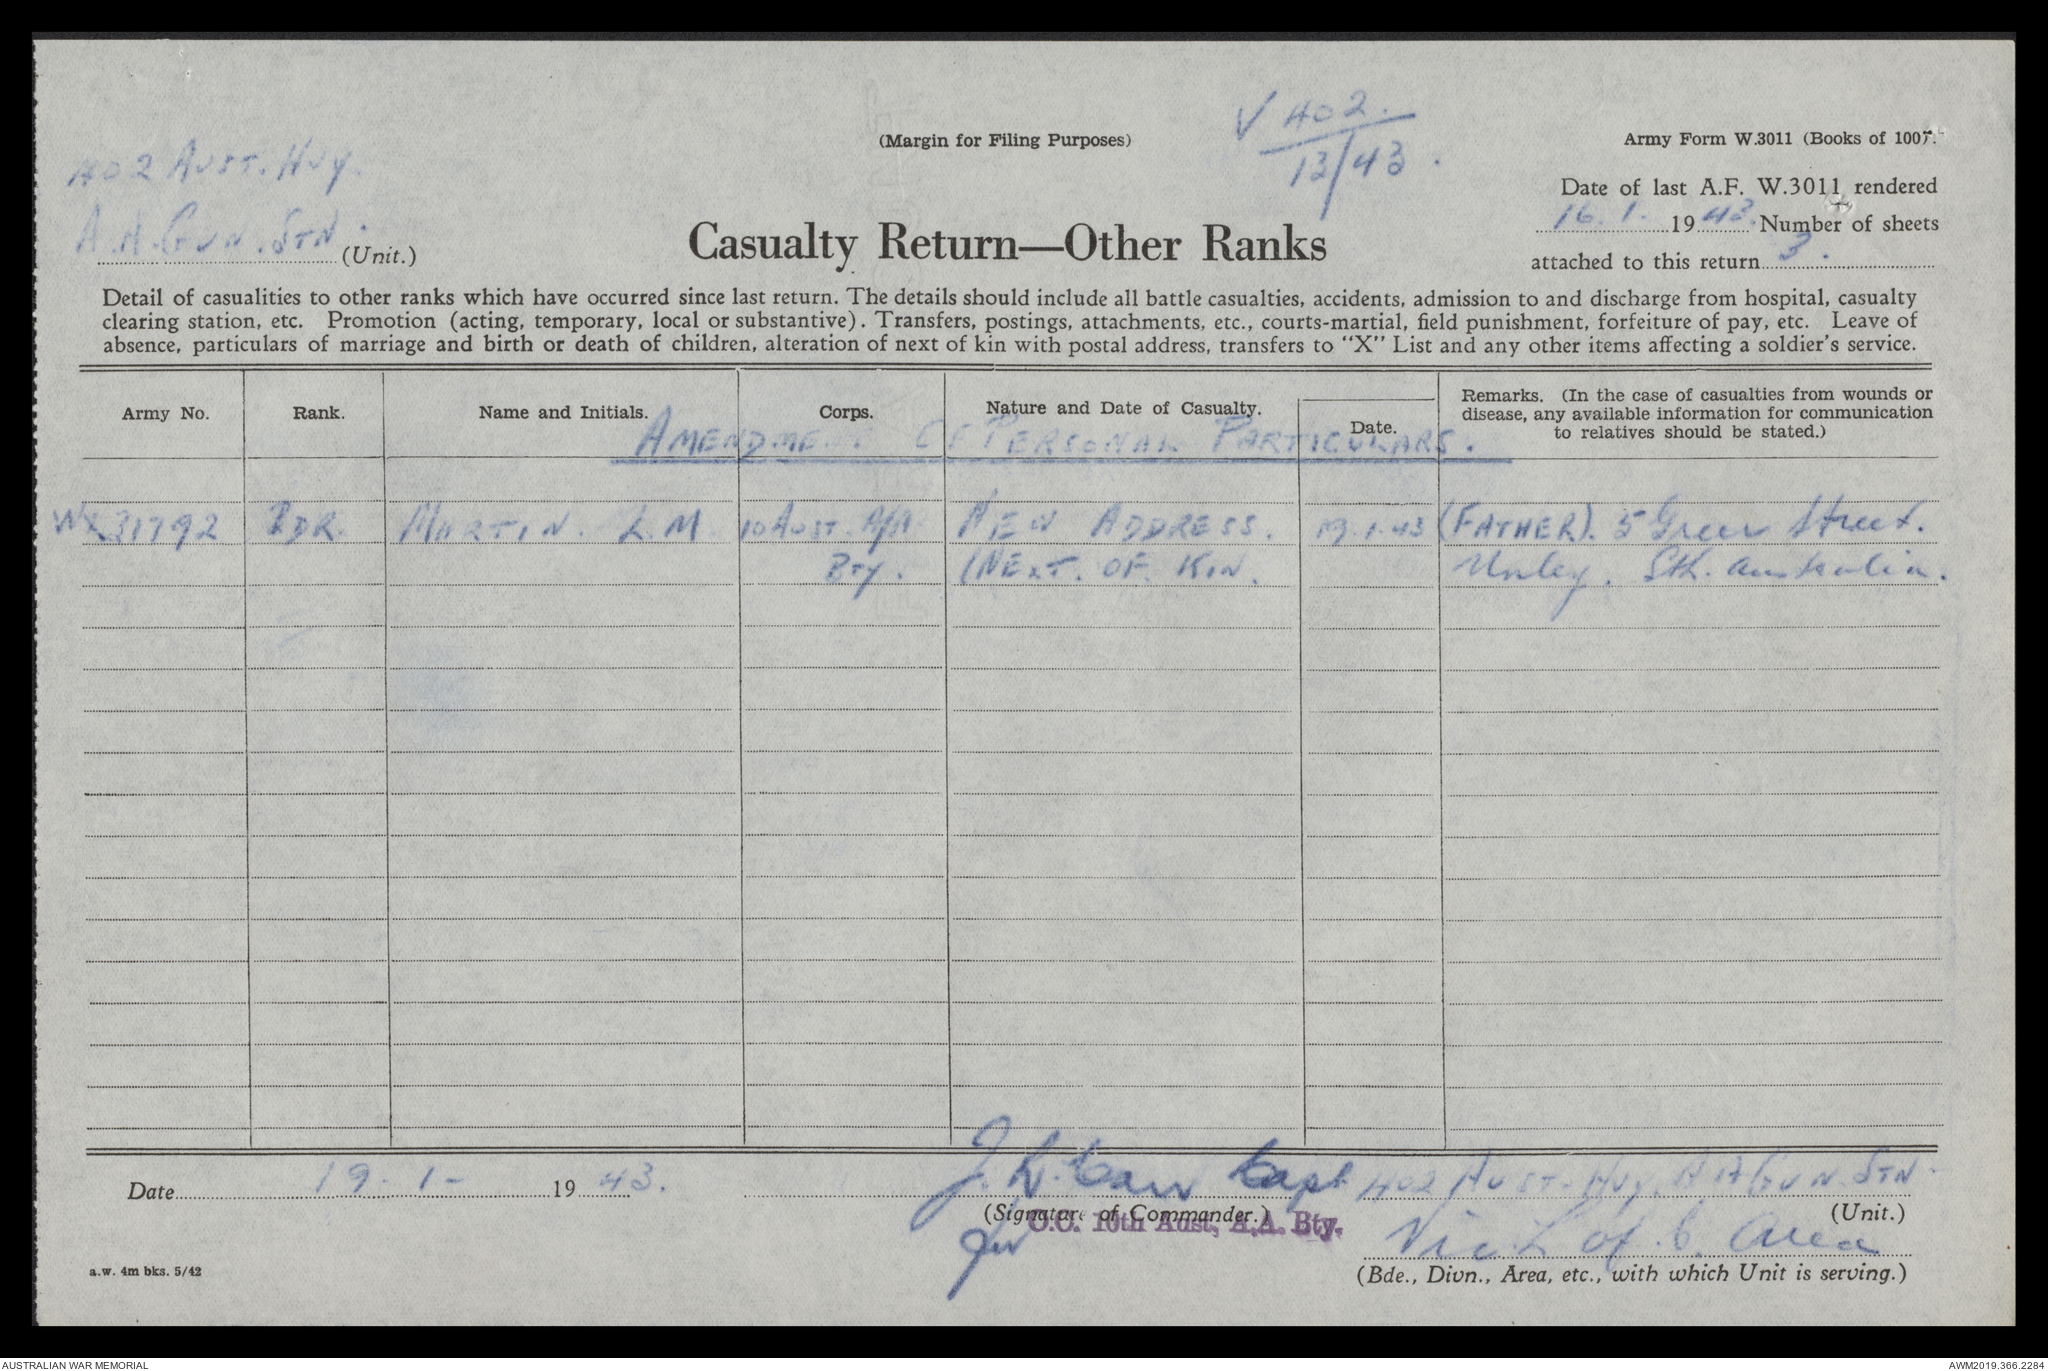 402 Aust. Hvy.
A.A. Gun. Stn.
(Unit.)
(Margin for Filing Purposes)
V 402.
13/43.
Army Form W.3011 (Books of 100).
Date of last A.F. W.3011 rendered
16.1. 1943. Number of sheets
attached to this return 3.
Casualty Return—Other Ranks
Detail of casualities to other ranks which have occurred since last return. The details should include all battle casualties, accidents, admission to and discharge from hospital, casualty
clearing station, etc. Promotion (acting, temporary, local or substantive). Transfers, postings, attachments, etc., courts-martial, field punishment, forfeiture of pay, etc. Leave of
absence, particulars of marriage and birth or death of children, alteration of next of kin with postal address, transfers to "X" List and any other items affecting a soldier's service.
Army No. Rank. Name and Initials. Corps. Nature and Date of Casualty. Date. Remarks. (In the case of casualties from wounds or
disease, any available information for communication
to relatives should be stated.)
Amendment Of Personal Particulars.
WX31792 Bdr. Martin. L.M 10 Aust. A/A New Address. 19.1.43 (Father). 5 Greer Street.
Bty. (Next. of. Kin. Unley. Sth. Australia.
Date 19-1- 1943. Capt 402 Aust. Hvy. A A Gun Stn.
(Signature of Commander.) (Unit.)
O.C. 10th Aust, A.A. Bty.
for Vic L of C. Area
(Bde., Divn., Area, etc., with which Unit is serving.)
a.w. 4m bks. 5/42
AUSTRALIAN WAR MEMORIAL AWM2019.366.2284